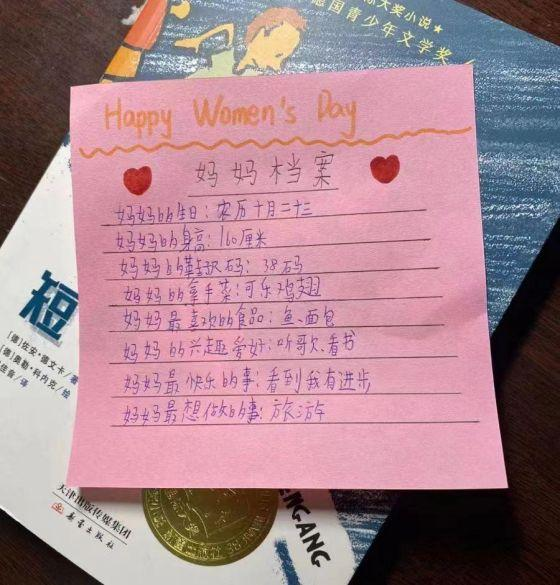 际大奖小说★
德国青少年文学奖
Happy Women's Day
妈妈档案
妈妈的生日：农历十月二十三
妈妈的身高：160厘米
妈妈的鞋子尺码：38码
妈妈的拿手菜：可乐鸡翅
妈妈最喜欢的食品：鱼、面包
妈妈的兴趣爱好：听歌、看书
妈妈最快乐的事：看到我有进步
妈妈最想做的事：旅游
短
[德]佐安·德文卡/著
[德]奥勒·科内克/绘
佳音/译
ENGANG
天津出版传媒集团
新蕾出版社